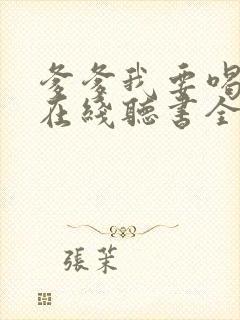 爹爹我要喝
在綫聽書全
張茉